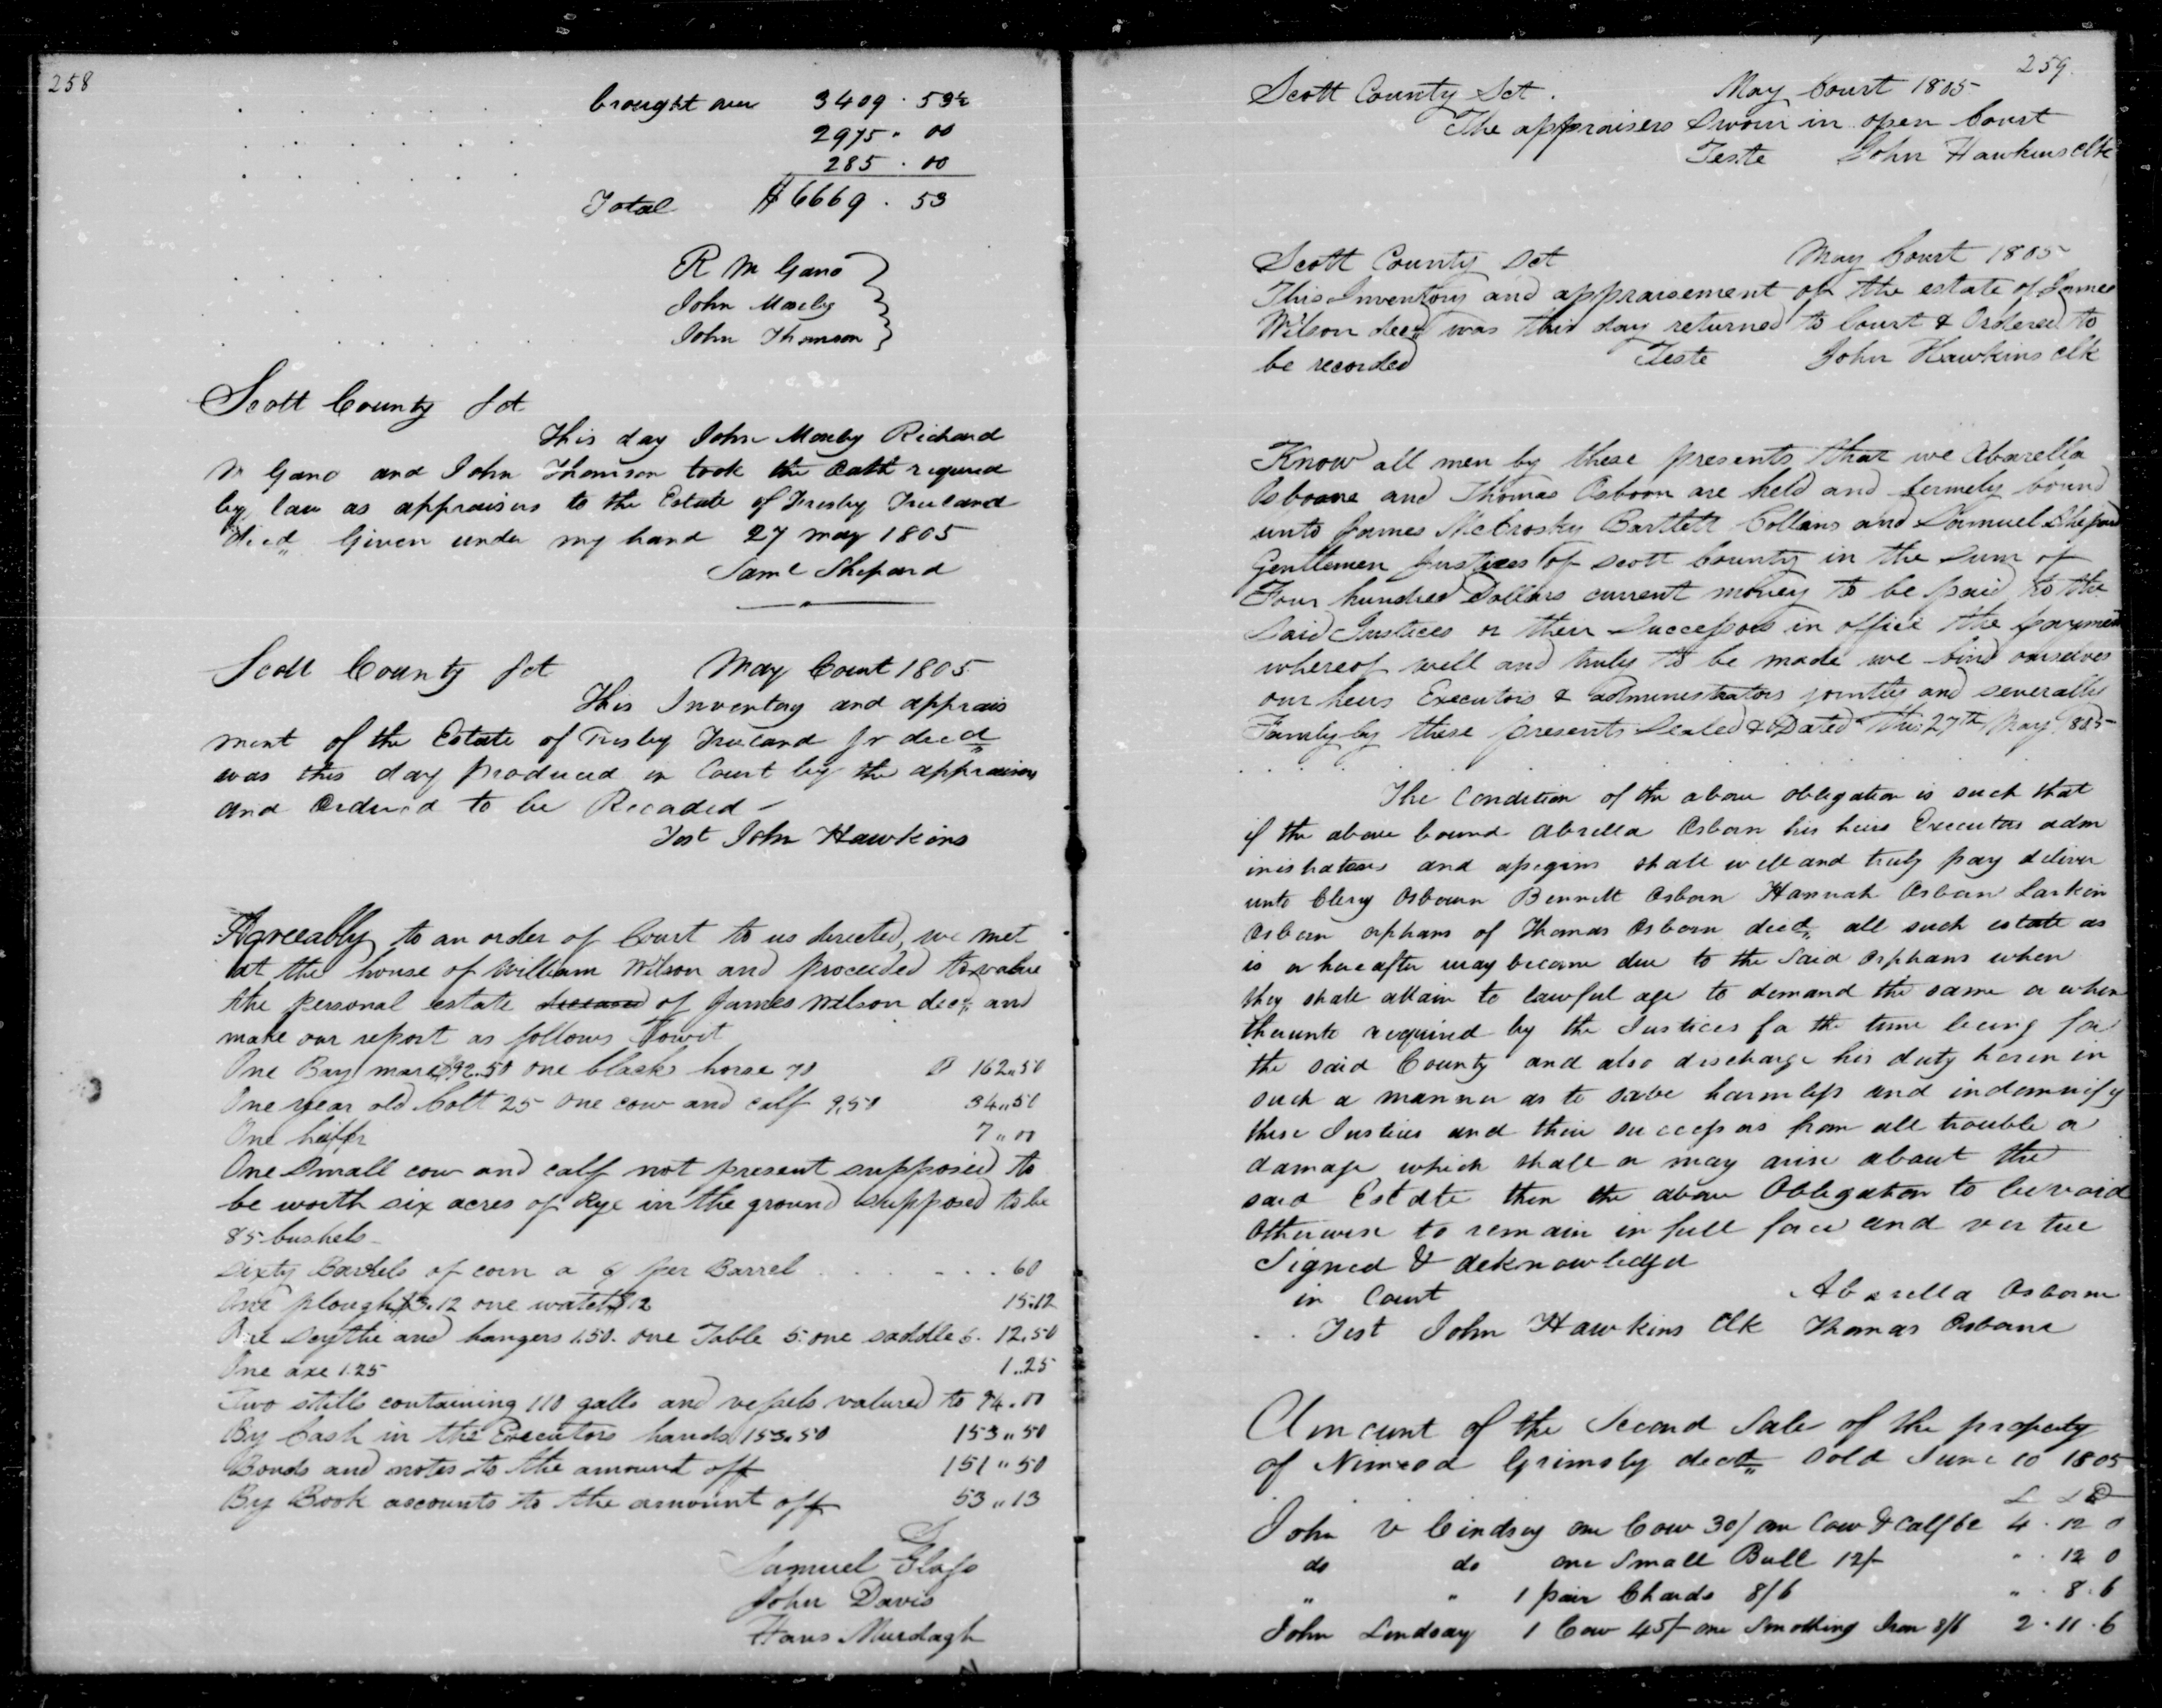 258
brought over 3409 . 53½
2975 . 00
285 . 00
Total $6669 . 53
R M Gano
John Mosby
John Thomson
Scott County Sct
This day John Mosby Richard
M Gano and John Thomson took the Oath required
by law as appraisers to the Estate of Trusley
decd Given under my hand 27 may 1805
Saml Shepard
Scott County Sct May Court 1805
This Inventory and apprais
ment of the Estate of Jr decd
was this day produced in Court by the appraisers
and Ordered to be Recorded
Test John Hawkins
Agreeably to an order of Court to us directed, we met
at the house of William Wilson and proceeded to value
the personal estate deceased of James Wilson decd and
make our report as follows Towit
One Bay mare $92.50 one black horse 70 $ 162.50
One year old Colt 25 one cow and calf 9.50 34.50
One heiffr 7.00
One Small cow and calf not present supposed to
be worth six acres of Rye in the ground supposed to be
85 bushels
Sixty Barrels of corn a 6/ per Barrel . . . . . . 60
One plough $3.12 one watch $12 15.12
One Scythe and hangers 1.50. one Table 5. one saddle 6. 12.50
One axe 1.25 1..25
Two stills containing 110 galls and vessels valued to 94.00
By Cash in the Executors hands 153.50 153.50
Bonds and notes to the amount off 151.50
By Book accounts to the amount off 53.13
Samuel Glass
John Davis
Hans Murdagh
259.
Scott County Sct. May Court 1805
The appraisers Sworn in open Court
Teste John Hawkins clk
Scott County Sct May Court 1805
This Inventory and appraisement of the estate of James
Wilson decd was this day returned to Court & Ordered to
be recorded Teste John Hawkins clk
Know all men by these presents that we Abarella
Osboane and Thomas Osboon are held and firmely bound
unto James McCrosky Bartlett Collins and Samuel Shepard
Gentlemen Justices of Scott County in the Sum of
Four hundred Dollars current money to be paid to the
Said Justices or their Successors in office the payment
whereof well and truly to be made we bind ourselves
our heirs Executors & administrators jointly and severally
Famly by these presents Sealed & Dated this 27th May 1805
The Condition of the above obligation is such that
if the above bound Abrella Osborn his heirs Executors adm
inistrators and assigins shall well and truly pay deliver
unto Clery Osbourn Bennett Osborn Hannah Osborn Larkin
Osborn orphans of Thomas Osborn decd all such estate as
is or hereafter may become due to the Said Orphans when
they shall attain to lawful age to demand the same or when
thereunto required by the Justices for the time being for
the said County and also discharge his duty herein in
such a manner as to save harmless and indemnify
these Justices and their successors from all trouble or
damage which shall or may arise about the
said Estate then the above Obligation to be void
Otherwise to remain in full force and vertue
Signed & acknowledged
in Court Abarella Osborne
Test John Hawkins Clk Thomas Osborne
Amount of the Second Sale of the property
of Nimrod Grimsly decd Sold June 10 1805
£ S D
John V Lindsey one Cow 30/ one Cow & Calf 62 4 . 12 0
do do one Small Bull 12/- " . 12 0
" " 1 pair Chards 8/6 " . 8 . 6
John Lindsay 1 Cow 45/- one Smothing Iron 8/6 2 . 11 . 6